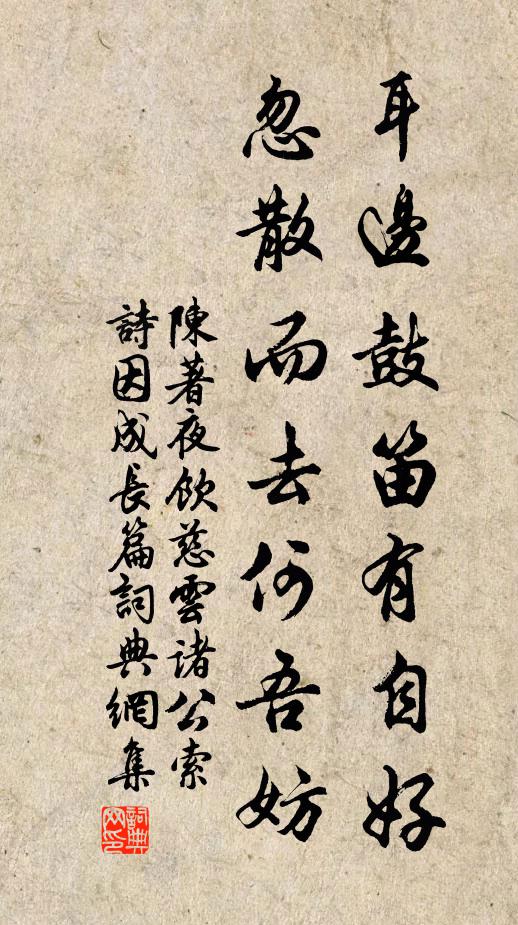 耳邊鼓笛有自好
忽散而去何吾妨
陳著夜飲慈雲諸公索
詩因成長篇詞典網集
詞典
网印